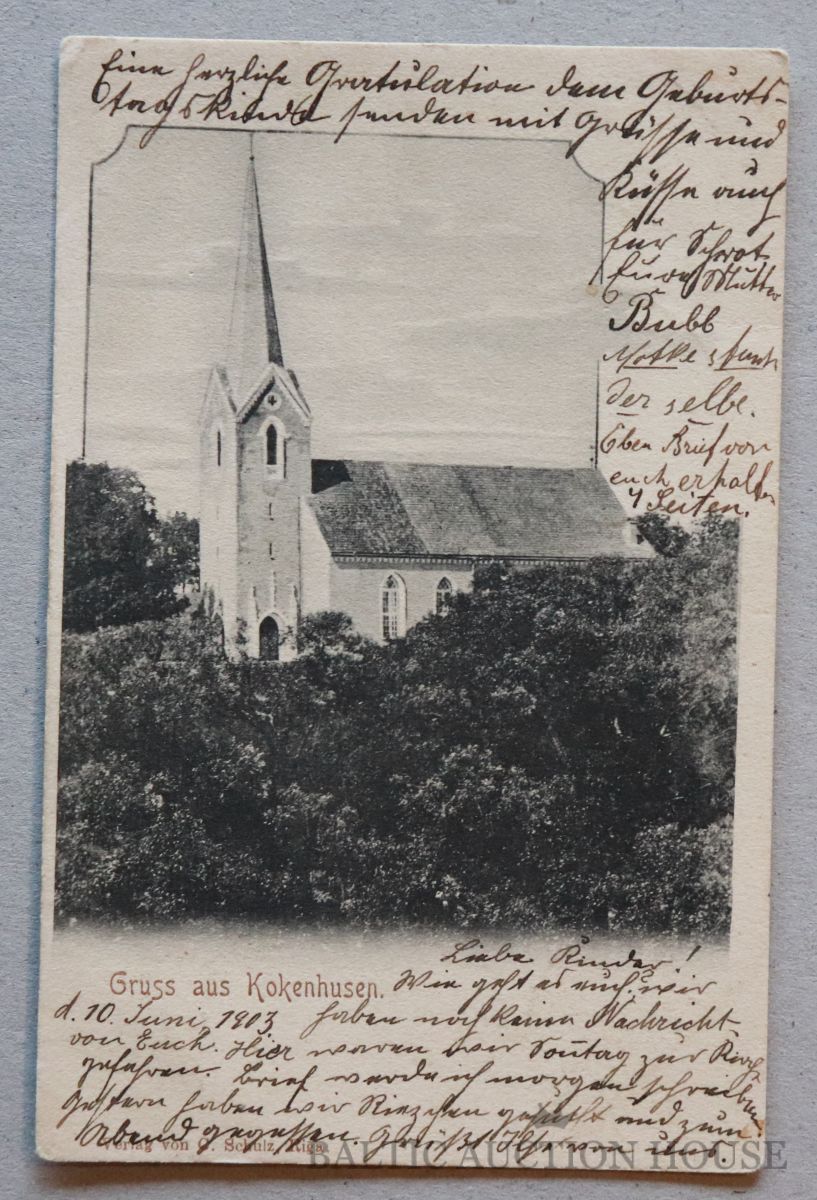 Eine herzliche Gratulation dem Geburts-
tagskinde senden mit Grüsse und
Küsse auch
für
Eure Mutter
Bubb
Motke
der selbe.
Eben Brief von
euch erhalten
4 Seiten.
Liebe Kinder!
Gruss aus Kokenhusen.
Wie geht es euch, wir
d. 10. Juni 1903 haben noch keine Nachricht
von Euch. Hier waren wir Sontag zur Kirche
gefahren. Brief werde ich morgen schreiben
Gestern haben wir und zum
Abend gegessen. Grüßt Ihr von uns.
Verlag von C. Schulz, Riga.
BALTIC AUCTION HOUSE